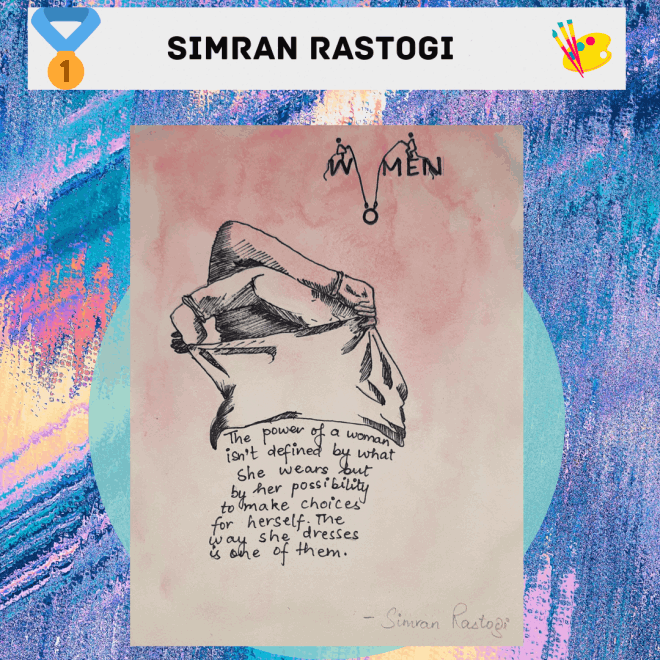 1
SIMRAN RASTOGI
WOMEN
The power of a woman
isn't defined by what
She wears but
by her possibility
to make choices
for herself. The
way she dresses
is one of them.
- Simran Rastogi